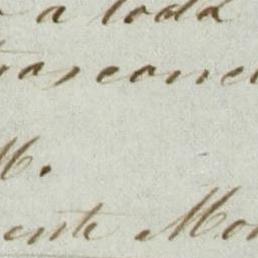 a toda
trasconci
M.
ente Mon